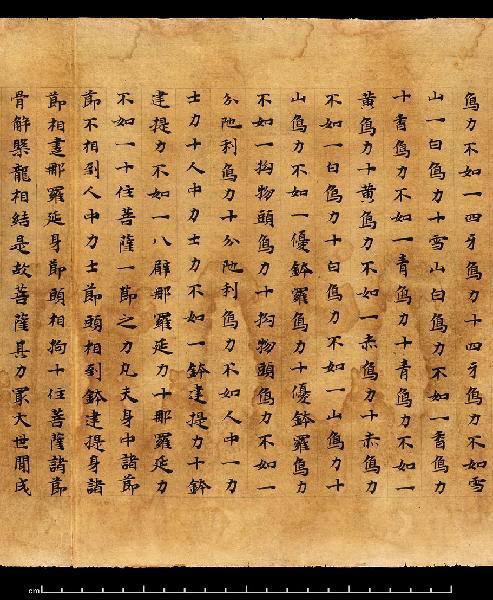 象力不如一四牙象力十四牙象力不如雪
山一白象力十雪山白象力不如一香象力
十香象力不如一青象力十青象力不如一
黄象力十黄象力不如一赤象力十赤象力
不如一白象力十白象力不如一山象力十
山象力不如一優鉢羅象力十優鉢羅象力
不如一拘物頭象力十拘物頭象力不如一
分陁利象力十分陁利象力不如人中一力
士力十人中力士力不如一鉢建提力十鉢
建提力不如一八臂那羅延力十那羅延力
不如一十住菩薩一節之力凡夫身中諸節
節不相到人中力士節頭相到鉢建提身諸
節相那羅延身節頭相拘十住菩薩諸節
骨解槃龍相結是故菩薩其力最大世間成
cm